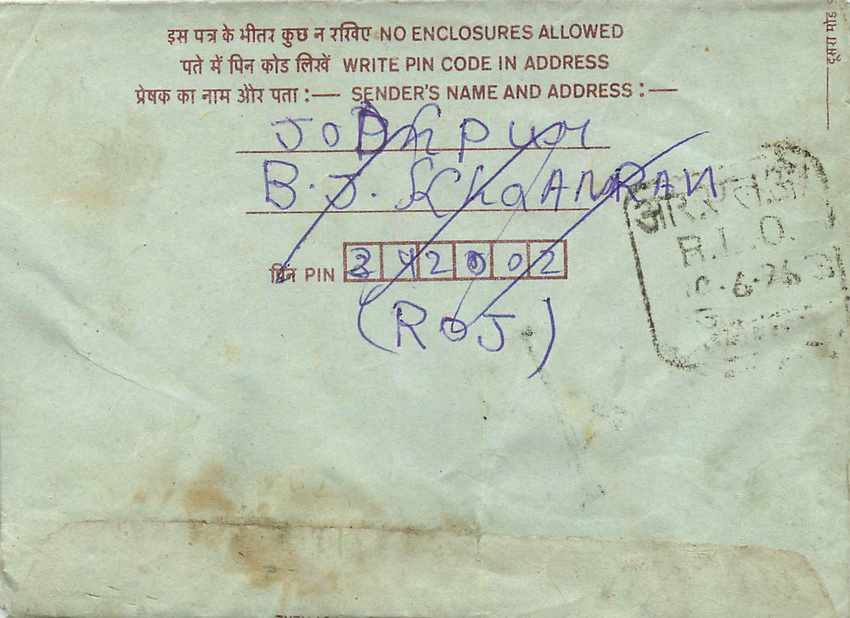 इस पत्र के भीतर कुछ न रखिए NO ENCLOSURES ALLOWED
पते में पिन कोड लिखें WRITE PIN CODE IN ADDRESS
प्रेषक का नाम और पता :— SENDER'S NAME AND ADDRESS :—
JODhpur
B.J.
पिन PIN 342002
(ROJ)
आर.एल.ओ
R.L.O.
6.76
दूसरा मोड़